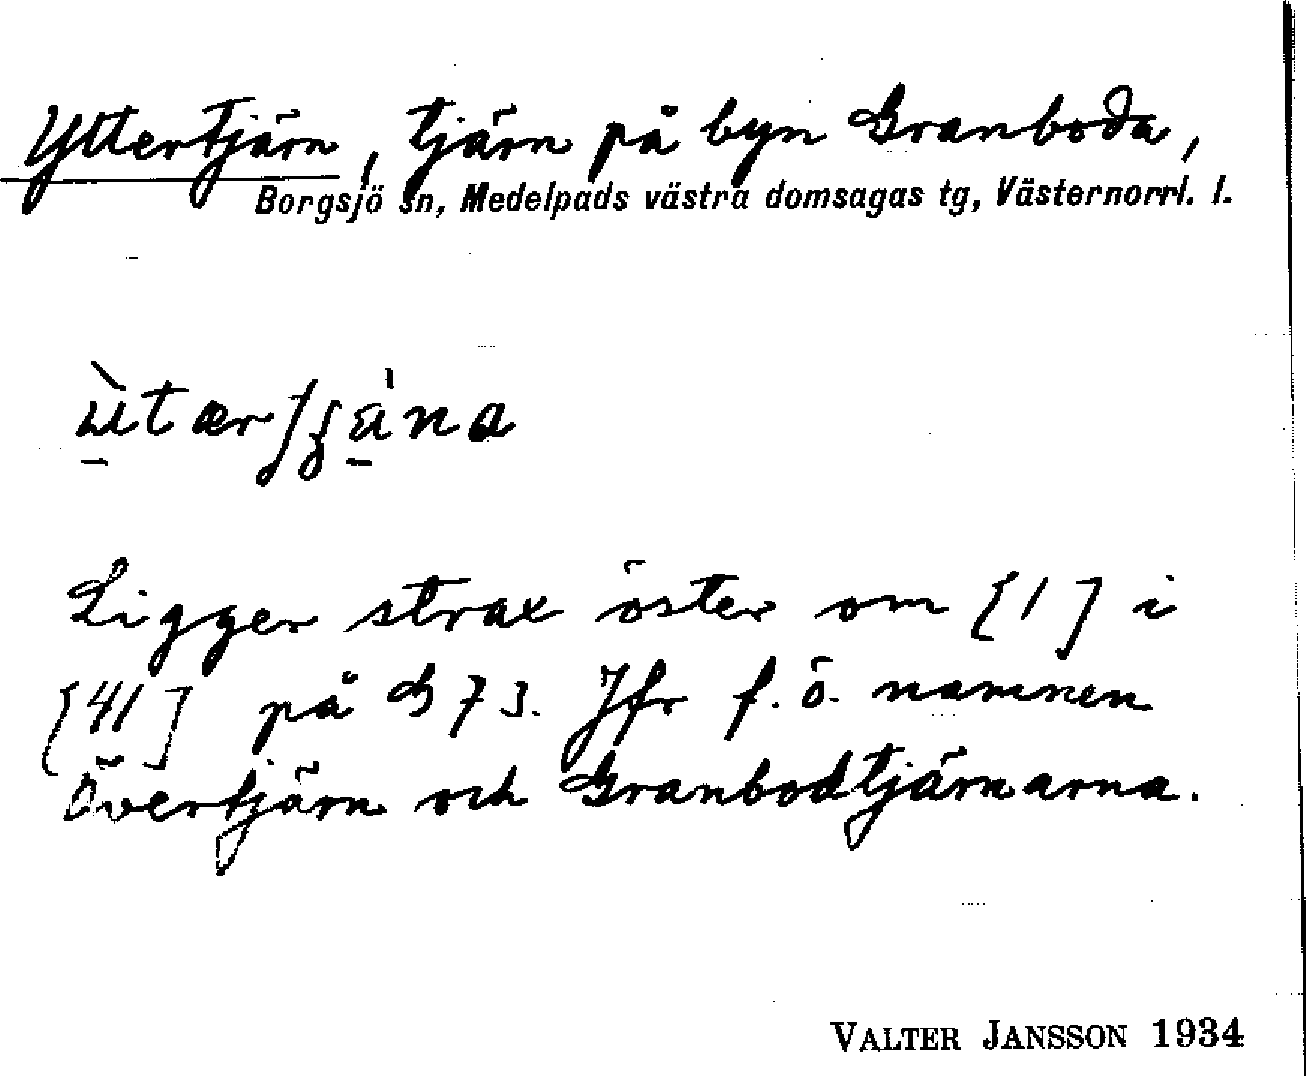 Yttertjärn, tjärn på byn Granboda,
Borgsjö sn, Medelpads västra domsagas tg, Västernorrl. l.
Ligger strax öster om [1] i
[41] på B 73. Jfr f.ö. namnen
Övertjärn och Granbodtjärnarna.
VALTER JANSSON 1934